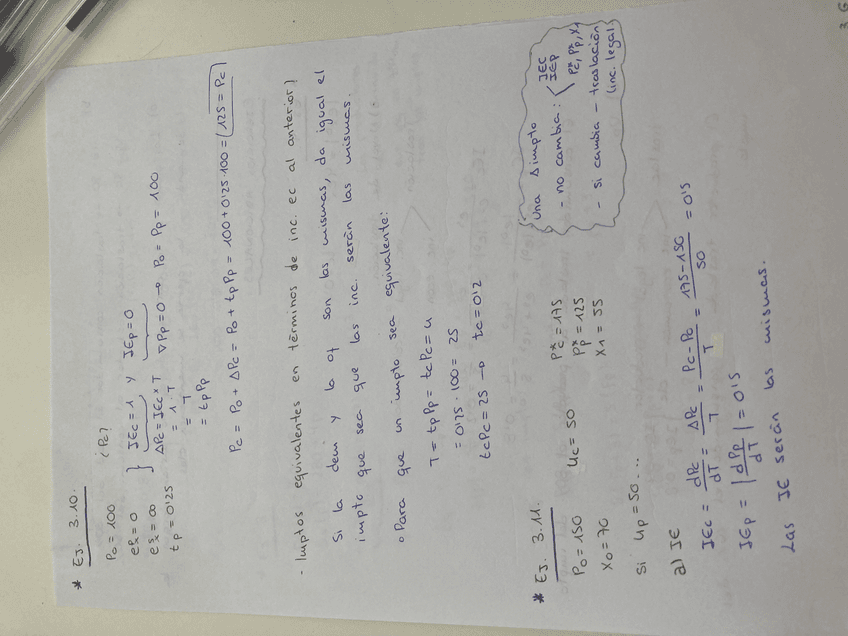 * EJ. 3.10.
P₀ = 100 ¿Pc?
eᵈₓ = 0 } IEc = 1 y IEp = 0
eˢₓ = ∞ ΔPc = IEc × T ∇Pp = 0 → P₀ = Pp = 100
tp = 0'25 = 1 · T
= T
= tp Pp
Pc = P₀ + ΔPc = P₀ + tp Pp = 100 + 0'25 · 100 = (125 = Pc)
- Imptos equivalentes en términos de inc. ec al anterior?
Si la dem y la of son las mismas, da igual el
impto que sea que las inc. serán las mismas.
o Para que un impto sea equivalente:
T = tp Pp = tc Pc = u
= 0'25 · 100 = 25
tc Pc = 25 → tc = 0'2
* EJ. 3.11.
P₀ = 150 Uc = 50 P*c = 175
X₀ = 70 P*p = 125
X₁ = 55
Si Up = 50 ...
a) IE
IEc = dPc/dT = ΔPc/T = Pc - P₀/T = 175 - 150/50 = 0'5
IEp = |dPp/dT| = 0'5
Las IE serán las mismas.
Una Δimpto
- no cambia: < IEc IEp
P*c, P*p, X₁
- si cambia - traslación
(inc. legal)